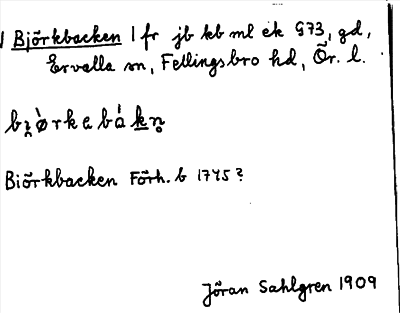 Björkbacken l fr jb kb ml ek G73, gd,
Ervalla sn, Fellingsbro hd, Ör. l.
Biörkbacken Förh. b 1745?
Jöran Sahlgren 1909